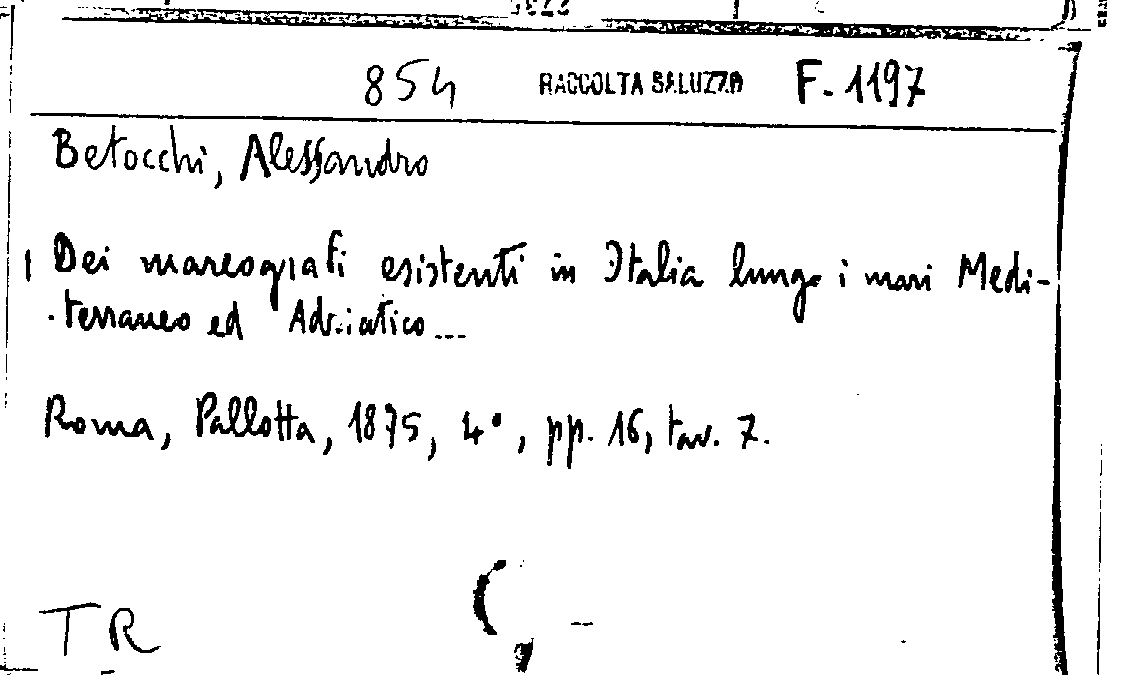 854 RACCOLTA SALUZZO F. 1197
Betocchi, Alessandro
Dei mareografi esistenti in Italia lungo i mari Medi-
terraneo ed Adriatico...
Roma, Pallotta, 1875, 4°, pp. 16, tav. 7.
TR